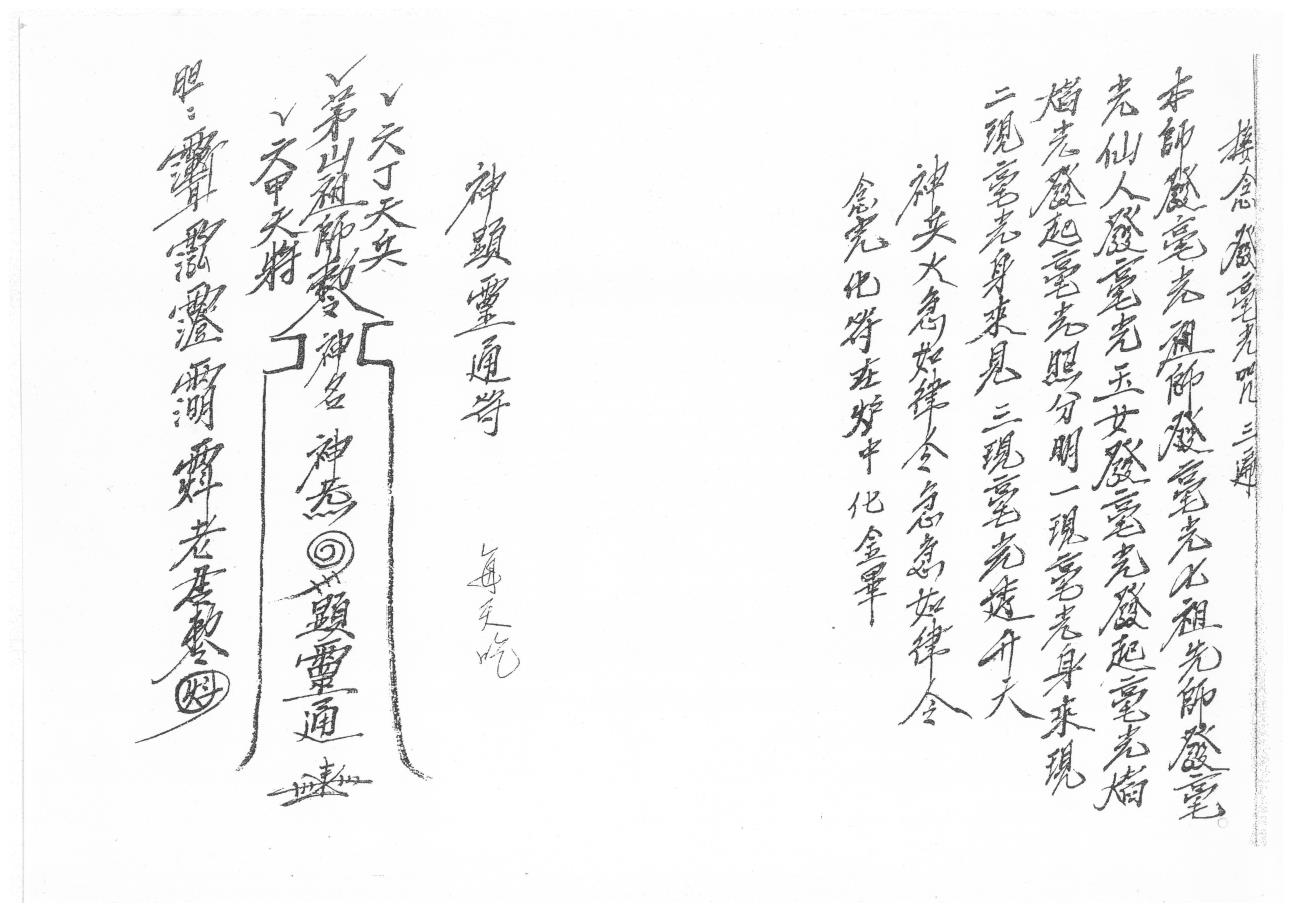 接念發毫光咒三遍
本師發毫光祖師發毫光七祖先師發毫
光仙人發毫光玉女發毫光發起毫光熖
熖光發起毫光照分明一現毫光身來現
二現毫光身來見三現毫光透升天
神兵火急如律令急急如律令
念完化符在炉中化金畢
神顕靈通符
每天吃
天丁天兵
茅山祖師勅令
天甲天將
神名
神炁
顕靈通
胆：
老君勅令